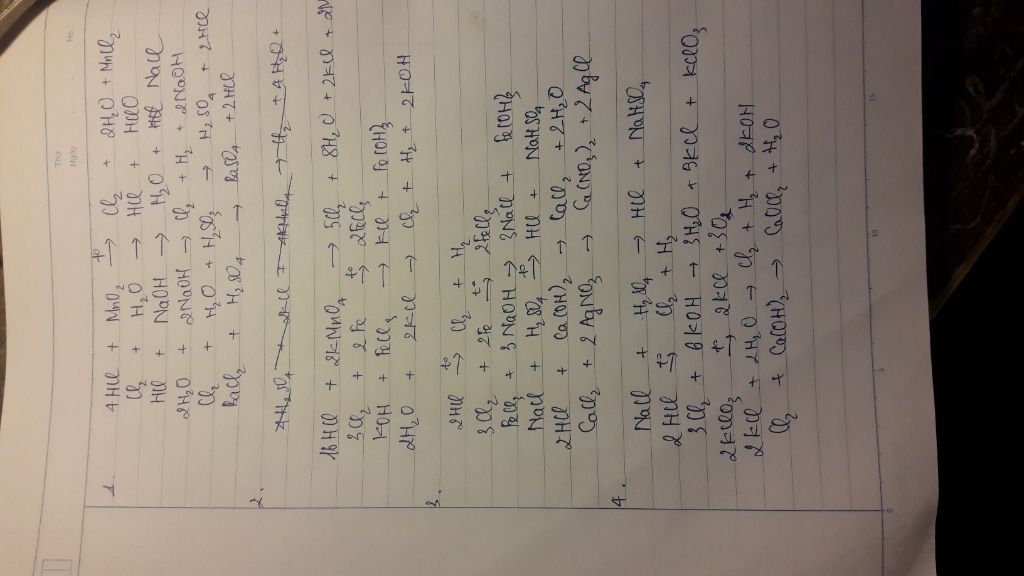 Thứ
Ngày
No.
1. 4HCl + MnO2 —t°→ Cl2 + 2H2O + MnCl2
Cl2 + H2O → HCl + HClO
HCl + NaOH → H2O + NaCl
2H2O + 2NaOH → Cl2 + H2 + 2NaOH
Cl2 + H2O + H2SO3 → H2SO4 + 2HCl
BaCl2 + H2SO4 → BaSO4 + 2HCl
2.
16HCl + 2KMnO4 → 5Cl2 + 8H2O + 2KCl +
3Cl2 + 2Fe —t°→ 2FeCl3
KOH + FeCl3 → KCl + Fe(OH)3
2H2O + 2KCl → Cl2 + H2 + 2KOH
3. 2HCl —t°→ Cl2 + H2
3Cl2 + 2Fe —t°→ 2FeCl3
FeCl3 + 3NaOH → 3NaCl + Fe(OH)3
NaCl + H2SO4 —t°→ HCl + NaHSO4
2HCl + Ca(OH)2 → CaCl2 + 2H2O
CaCl2 + 2AgNO3 → Ca(NO3)2 + 2AgCl
4. NaCl + H2SO4 → HCl + NaHSO4
2HCl —t°→ Cl2 + H2
3Cl2 + 6KOH → 3H2O + 5KCl + KClO3
2KClO3 —t°→ 2KCl + 3O2
2KCl + 2H2O → Cl2 + H2 + 2KOH
Cl2 + Ca(OH)2 → CaOCl2 + H2O
0 5 10 15